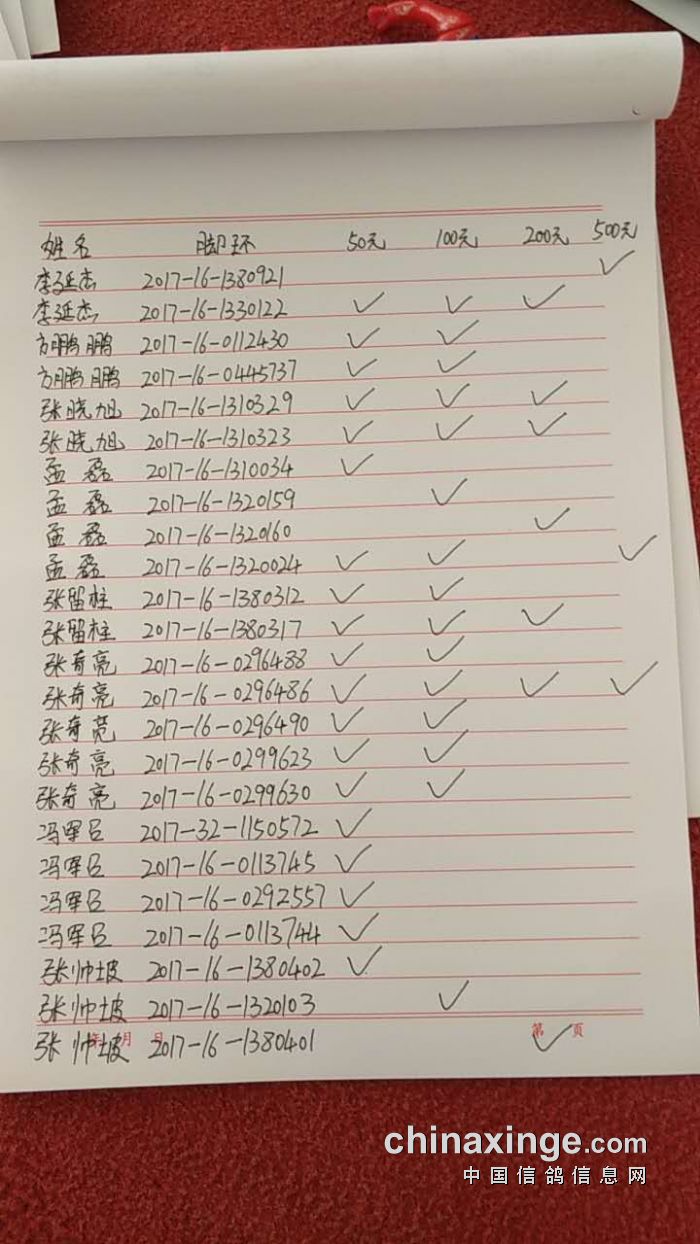 姓名 脚环 50元 100元 200元 500元
李延杰 2017-16-1380921 ✓
李延杰 2017-16-1330122 ✓ ✓ ✓
方鹏鹏 2017-16-0112430 ✓ ✓
方鹏鹏 2017-16-0445737 ✓ ✓
张晓旭 2017-16-1310329 ✓ ✓ ✓
张晓旭 2017-16-1310323 ✓ ✓ ✓
孟磊 2017-16-1310034 ✓
孟磊 2017-16-1320159 ✓
孟磊 2017-16-1320160 ✓
孟磊 2017-16-1320024 ✓ ✓ ✓
张留柱 2017-16-1380312 ✓ ✓
张留柱 2017-16-1380317 ✓ ✓ ✓
张奇亮 2017-16-0296488 ✓ ✓
张奇亮 2017-16-0296486 ✓ ✓ ✓ ✓
张奇亮 2017-16-0296490 ✓ ✓
张奇亮 2017-16-0299623 ✓ ✓
张奇亮 2017-16-0299630 ✓ ✓
冯军臣 2017-32-1150572 ✓
冯军臣 2017-16-0113745 ✓
冯军臣 2017-16-0292557 ✓
冯军臣 2017-16-0113744 ✓
张帅坡 2017-16-1380402 ✓
张帅坡 2017-16-1320103 ✓
年 月 日 第 页
张帅坡 2017-16-1380401 ✓
chinaxinge.com
中国信鸽信息网